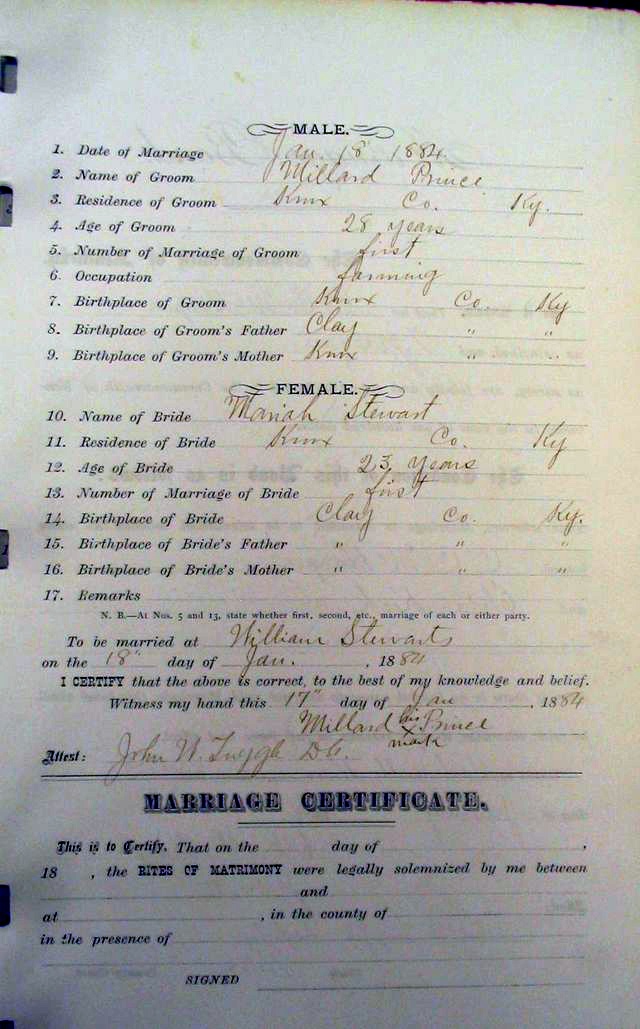 MALE.
1. Date of Marriage Jan. 18" 1884.
2. Name of Groom Millard Prince
3. Residence of Groom Knox Co. Ky.
4. Age of Groom 28 years
5. Number of Marriage of Groom first
6. Occupation farming
7. Birthplace of Groom Knox Co. Ky
8. Birthplace of Groom's Father Clay " "
9. Birthplace of Groom's Mother Knox " "
FEMALE.
10. Name of Bride Mariah Stewart
11. Residence of Bride Knox Co. Ky
12. Age of Bride 23 years
13. Number of Marriage of Bride first
14. Birthplace of Bride Clay Co. Ky.
15. Birthplace of Bride's Father " " "
16. Birthplace of Bride's Mother " " "
17. Remarks
N. B.—At Nos. 5 and 13, state whether first, second, etc., marriage of each or either party.
To be married at William Stewarts
on the 18" day of Jan. , 1884
I CERTIFY that the above is correct, to the best of my knowledge and belief.
Witness my hand this 17" day of Jan , 1884
Millard his X mark Prince
Attest: John W. D.C.
MARRIAGE CERTIFICATE.
This is to Certify, That on the day of ,
18 , the RITES OF MATRIMONY were legally solemnized by me between
and
at , in the county of
in the presence of
SIGNED